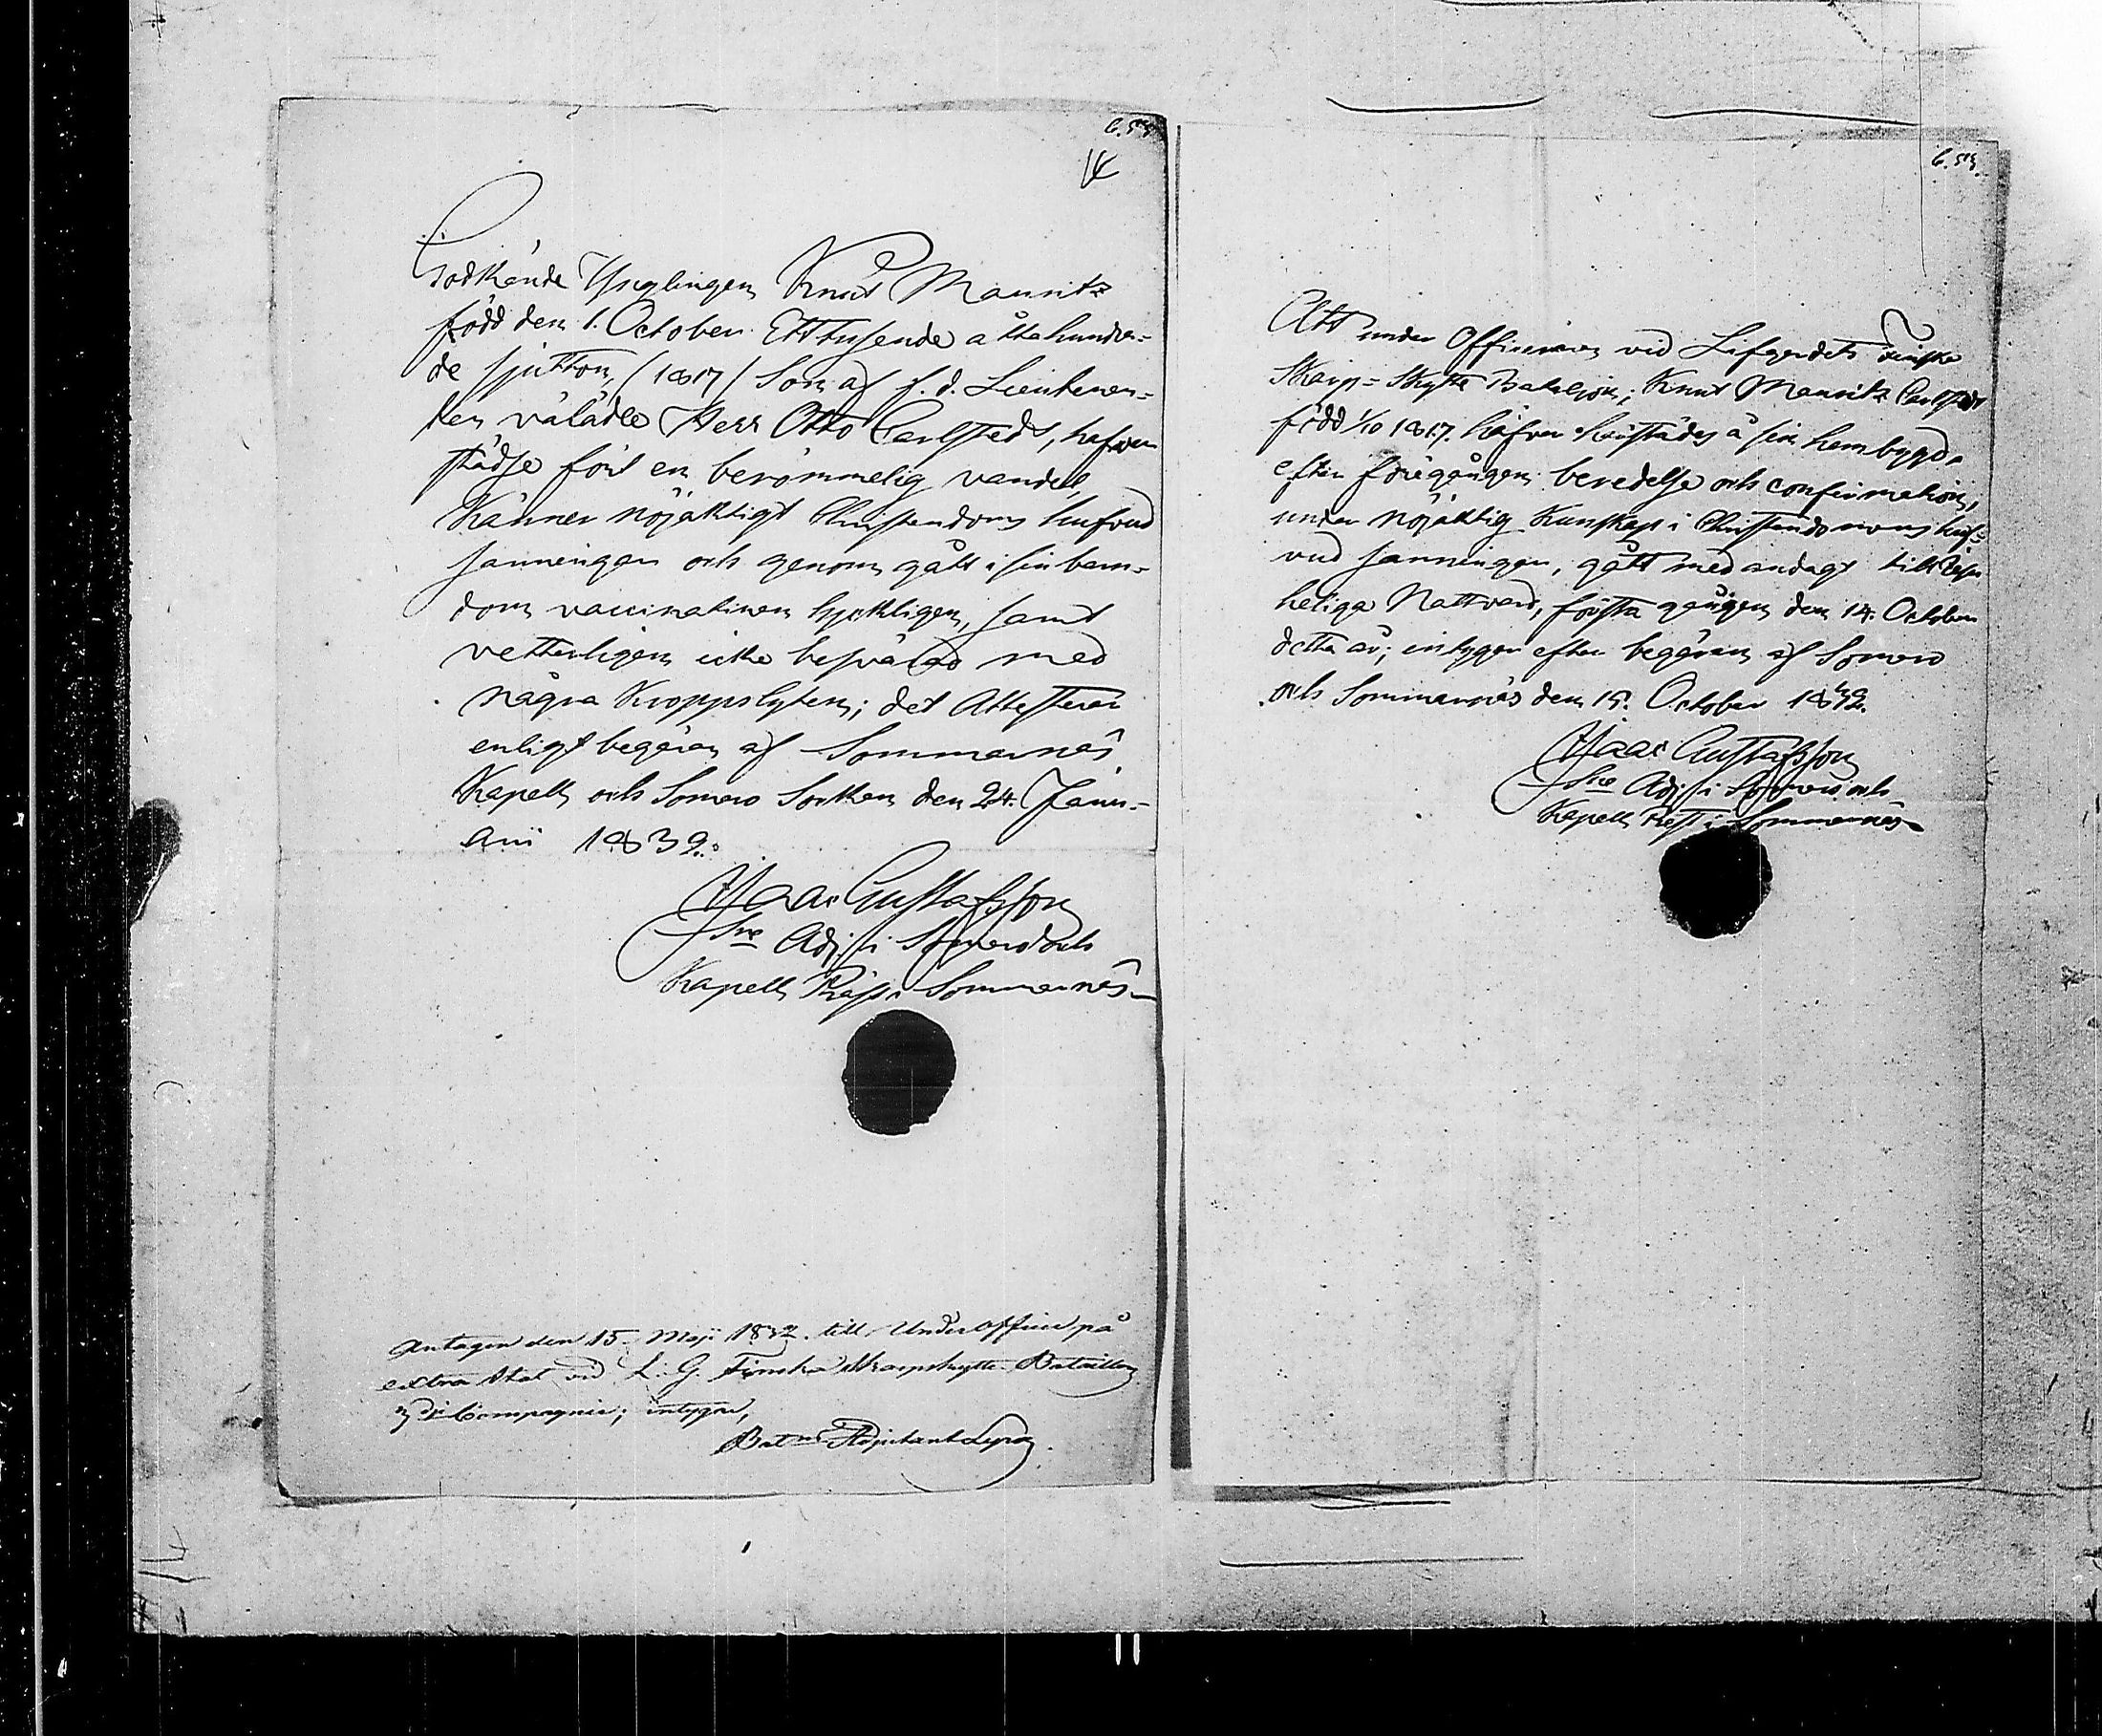 6.53
14
Godkände Ynglingen Knut Mauritz
född den 1. October Ettusende åttahundra-
de sjutton, (1817) Son af f. d. Lieutenan-
ten väladle Herr Otto Carlstedt, hafver
städse fört en berömmelig vandel,
Känner nöjaktigt Christendoms hufvud
sanningar och genom gått i sin barn-
dom vaccinationen lyckligen, samt
vetterligen icke besvärad med
några Kroppslyten; det Attesterar
enligt begäran af Sommarnäs
Kapell och Somero Socken den 24. Janu-
arii 1832.
Isaac Gustafsson
Adj. i Somero och
Kapells Präst i Sommarnäs
Antagen den 15 Maji 1832. till Under officer på
extra Stat vid L. G. Finska Skarpskytte Bataillon
3 dje Compagnie; intygar,
Batns Adjutant
6.53.
Att under Officeraren vid Lifgardets Finska
Skarp=Skytte Bataljon; Knut Mauritz Carlstedt
född 1/10 1817. håfver härstädes å sin hembygd,
efter föregången beredelse och confirmation,
under nöjaktig Kunskap i Christendomens huf=
vud sanningar, gått med andagt till
heliga Nattvard, första gången den 14. October
detta år; intygar efter begäran af Somero
och Sommarnäs den 15. October 1832.
Isaac Gustafsson
Adj. i Somero och
Kapells Präst i Sommarnäs